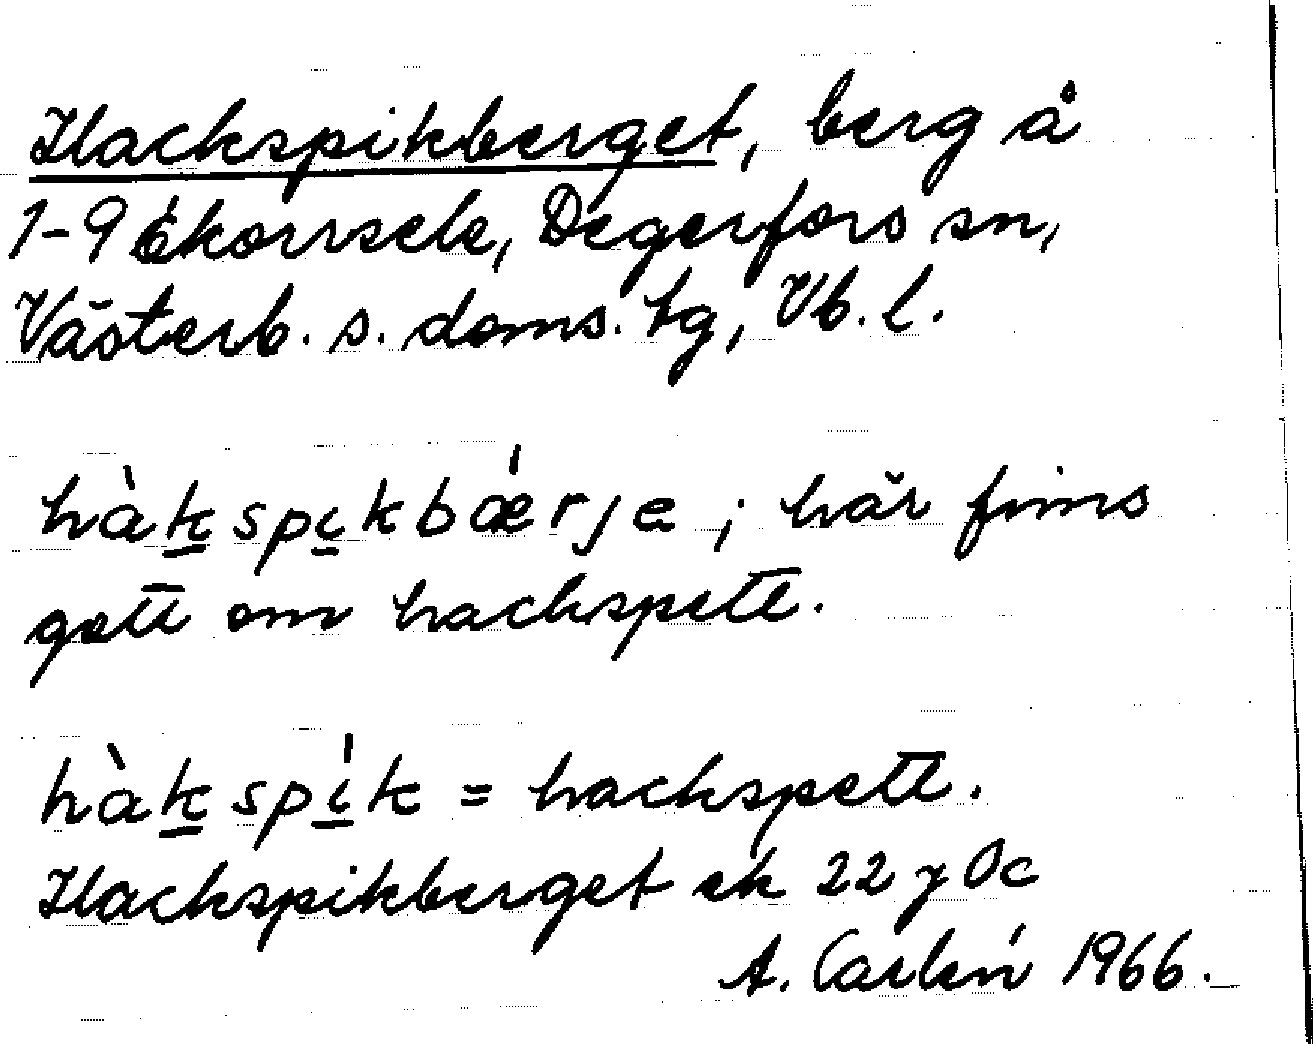 Hackspikberget, berg å
1-9 Ekorrsele, Degerfors sn,
Västerb. s. doms. tg, Vb. l.
hàk̲spi̲kbǽrje; här finns
gott om hackspett.
hàk̲spí̲k = hackspett.
Hackspikberget ek 22 7 0c
A. Carlén 1966.